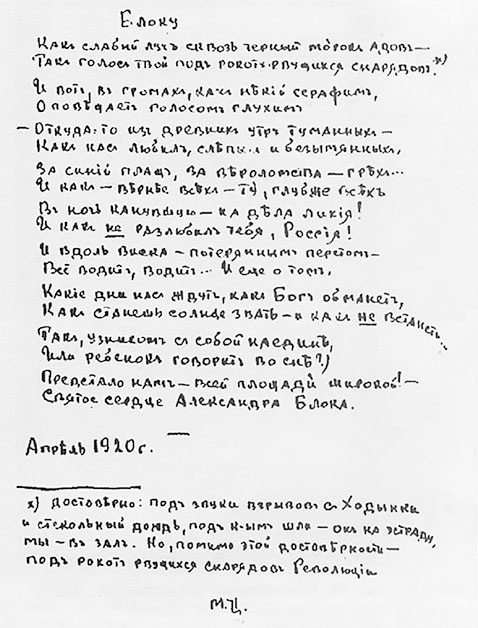 Блоку
Какъ слабый лучъ сквозь черный морокъ адовъ —
Такъ голосъ твой подъ рокотъ рвущихся снарядовъ.х)
И вотъ, въ громахъ, какъ нѣкій серафимъ,
Оповѣдаетъ голосомъ глухимъ
— Откуда-то изъ древнихъ утръ туманныхъ —
Какъ насъ любилъ, слѣпыхъ и безымянныхъ,
За синій плащъ, за вѣроломства — грѣхъ...
И какъ — вѣрнѣе всѣхъ — ту, глубже всѣхъ
Въ ночь канувшую — на дѣла лихія!
И какъ не разлюбилъ тебя, Россія!
И вдоль виска — потеряннымъ перстомъ —
Всё водитъ, водитъ... И еще о томъ,
Какіе дни насъ ждутъ, какъ Богъ обманетъ,
Какъ станешь солнце звать — и какъ не встанетъ...
Такъ, узникомъ съ собой наединѣ,
(Или ребенокъ говоритъ во снѣ?)
Предстало намъ — всей площади широкой! —
Святое сердце Александра Блока.
Апрѣль 1920 г.
х) достовѣрно: подъ звуки взрывовъ съ Ходынки
и стекольный дождь, подъ к-ымъ шли — онъ на эстраду,
мы — въ залъ. Но, помимо этой достовѣрности —
подъ рокотъ рвущихся снарядовъ Революціи
М.Ц.